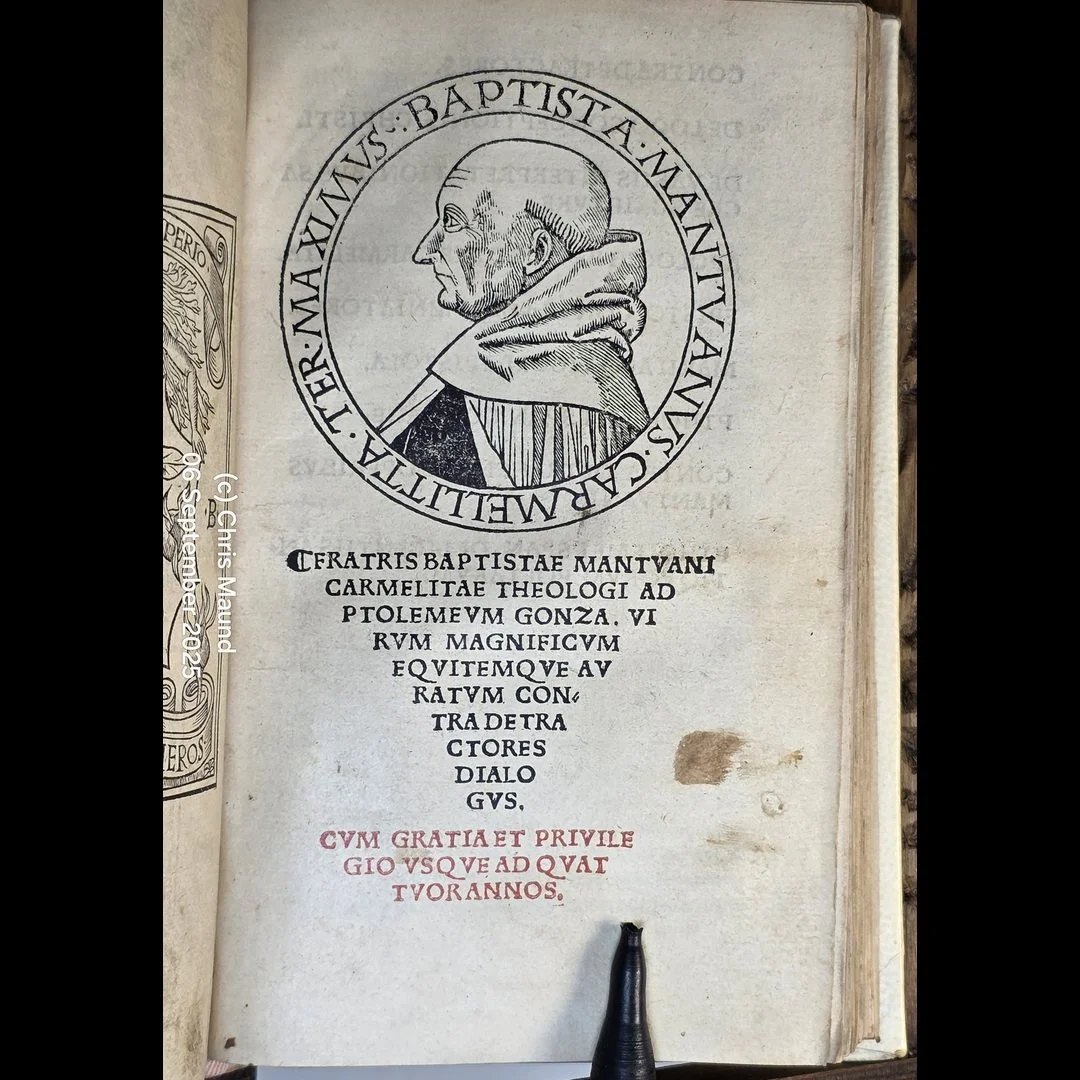 BAPTISTA·MANTVANVS·CARMELLITTA·TER·MAXIMVS:
FRATRIS BAPTISTAE MANTVANI
CARMELITAE THEOLOGI AD
PTOLEMEVM GONZA. VI
RVM MAGNIFICVM
EQVITEMQVE AV
RATVM CON-
TRA DETRA
CTORES
DIALO
GVS.
CVM GRATIA ET PRIVILE
GIO VSQVE AD QVAT
TVOR ANNOS.
(c) Chris Maund
06 September 2025